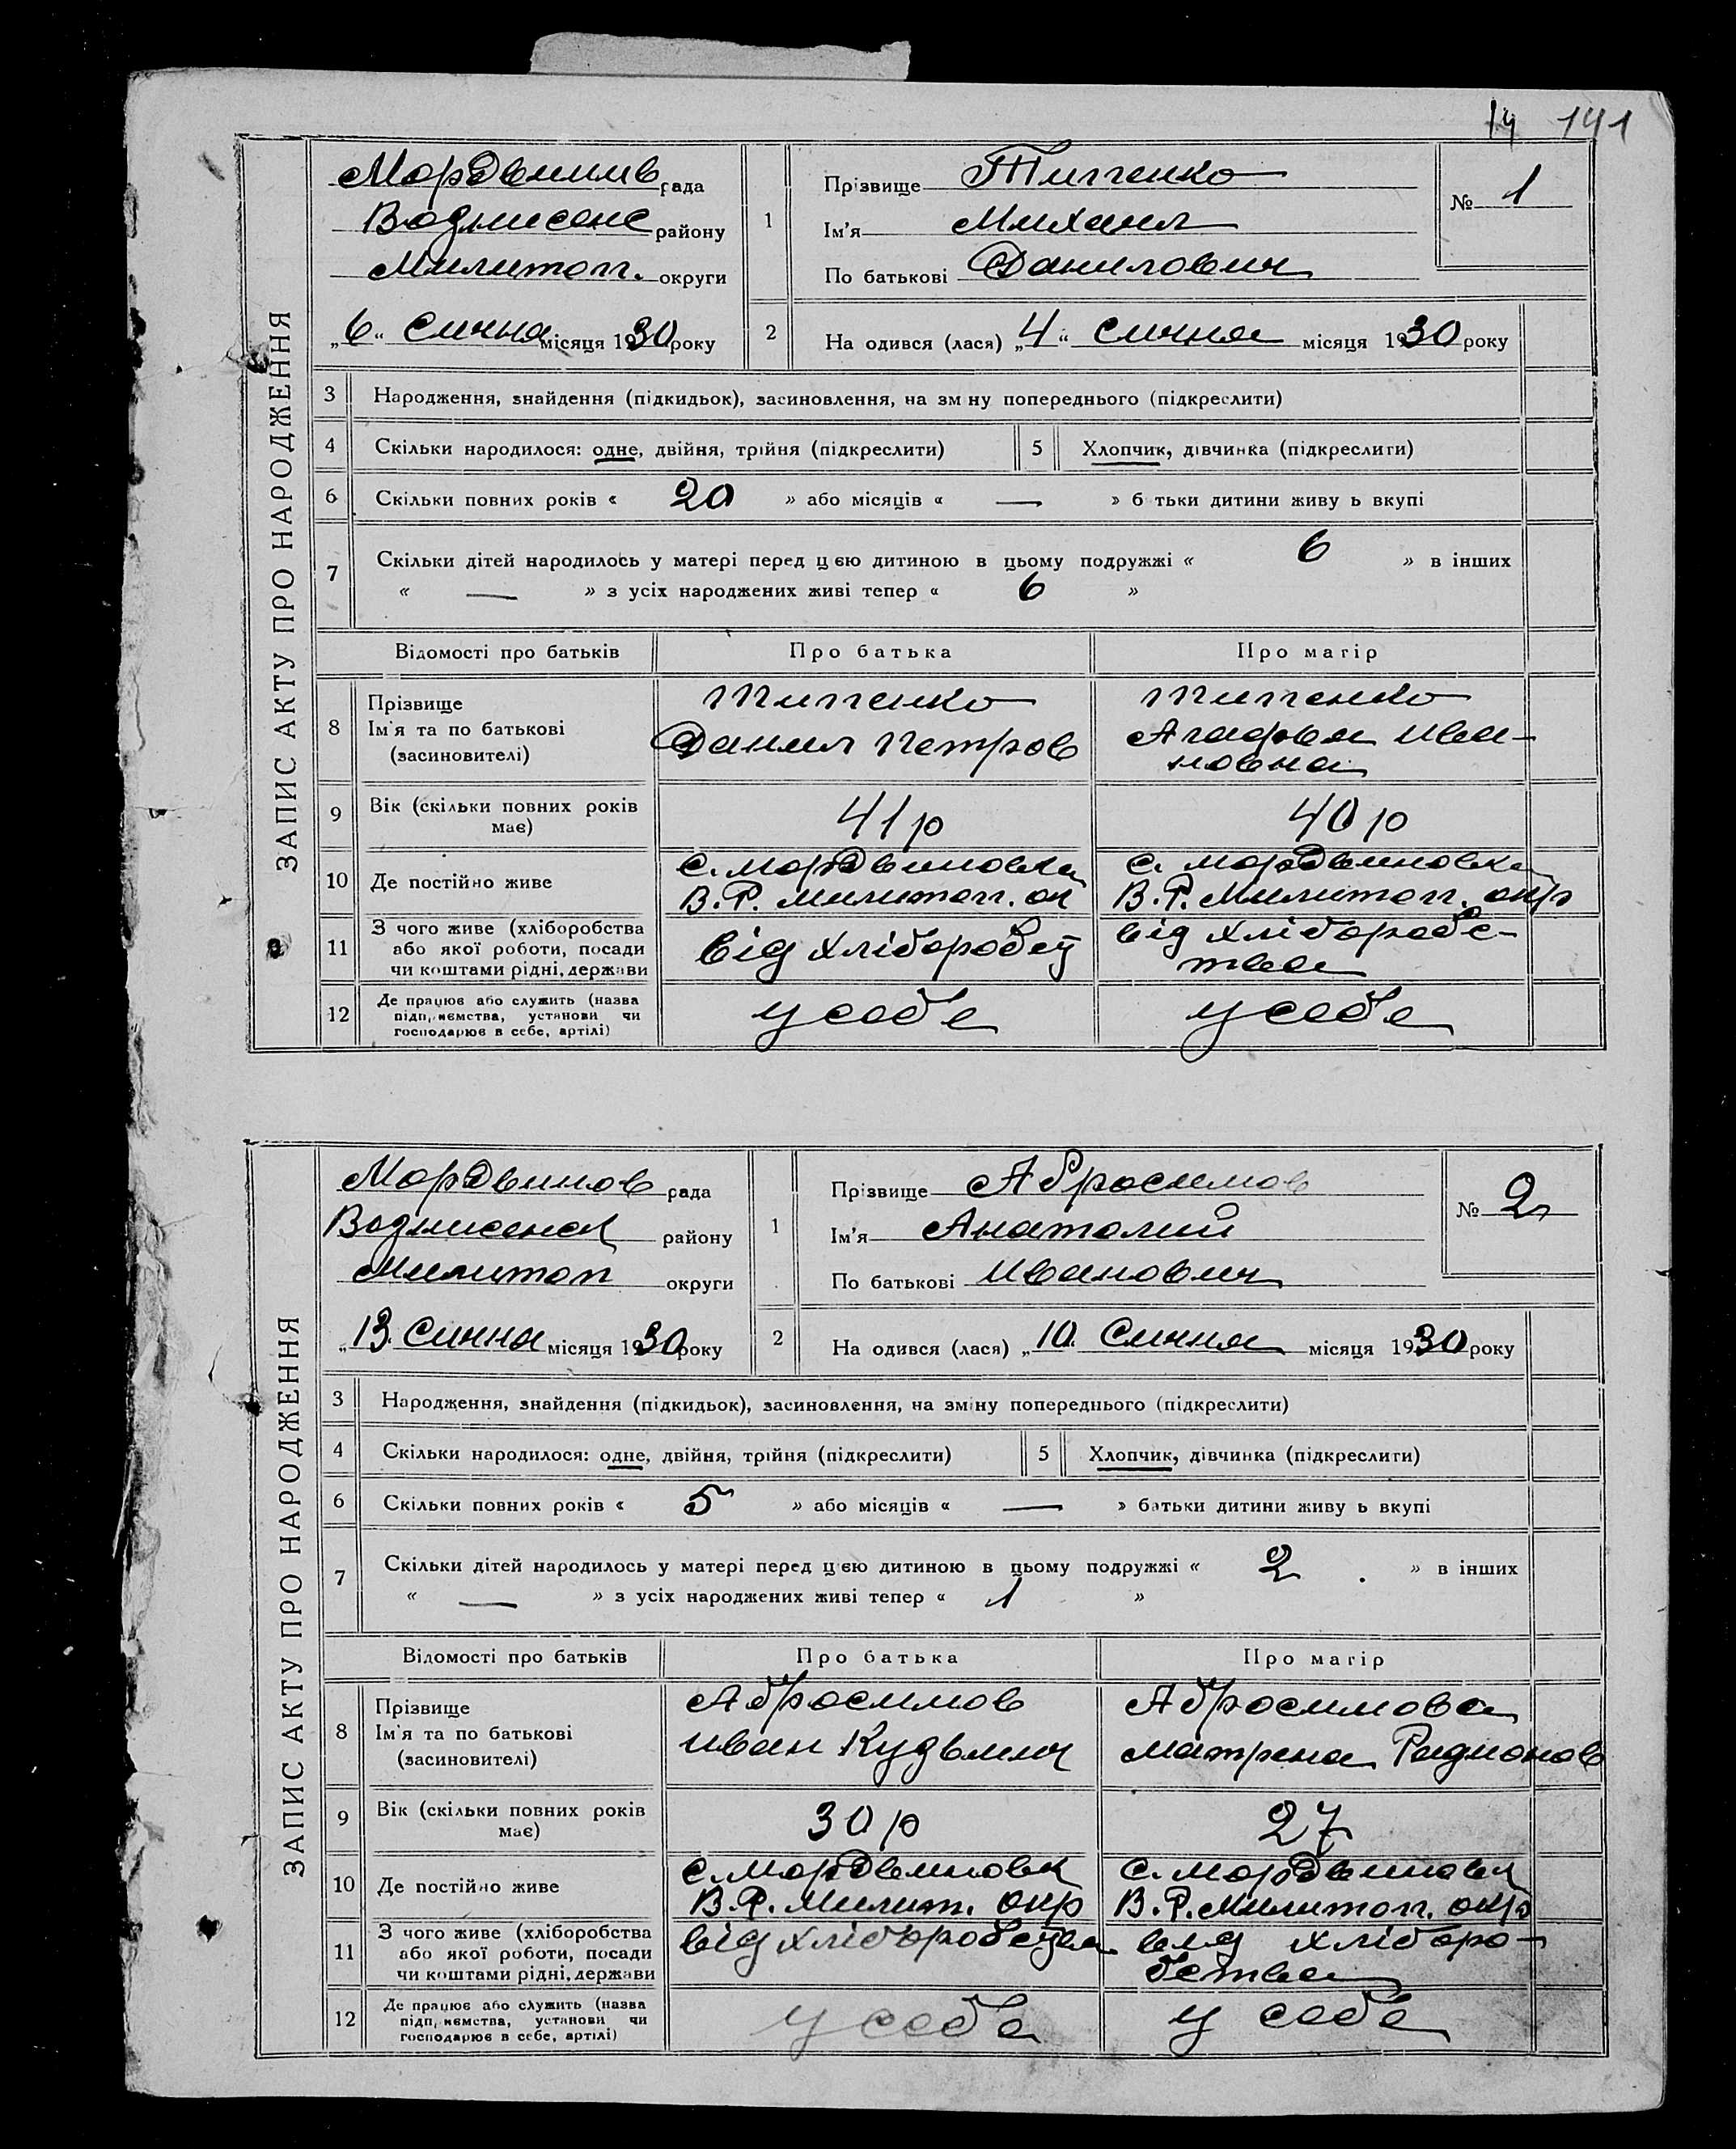 14 141
ЗАПИС АКТУ ПРО НАРОДЖЕННЯ
Мордвинив рада
Вознисенс району
Милитоп. округи
„6“ Сичня місяця 1930 року
1
Прізвище Тищенко
Ім'я Михаил
По батькові Данилович
№ 1
2 На одився (лася) „4“ Сичня місяця 1930 року
3 Народження, знайдення (підкидьок), засиновлення, на зм ну попереднього (підкреслити)
4 Скільки народилося: одне, двійня, трійня (підкреслити) 5 Хлопчик, дівчинка (підкреслити)
6 Скільки повних років « 20 » або місяців « — » б тьки дитини живу ь вкупі
7 Скільки дітей народилось у матері перед цею дитиною в цьому подружжі « 6 » в інших
« — » з усіх народжених живі тепер « 6 »
Відомості про батьків Про батька Про матір
8 Прізвище
Ім'я та по батькові
(засиновителі)
Тищенко
Данил Петров
Тищенко
Агафья Ива-
новна
9 Вік (скільки повних років
має)
41 р
40 р
10 Де постійно живе
с. Мордвиновка
В.Р. Милитоп. ок
с. Мордвиновка
В.Р. Милитоп. окр
11 З чого живе (хліборобства
або якої роботи, посади
чи коштами рідні, держави
від хліборобст
від хліборобс-
тва
12 Де працює або служить (назва
підп, иємства, установи чи
господарює в себе, артілі)
у себе
у себе
ЗАПИС АКТУ ПРО НАРОДЖЕННЯ
Мордвинов рада
Вознисенск району
Милитоп округи
„13. Сичня місяця 1930 року
1
Прізвище Абросимов
Ім'я Анатолий
По батькові Иванович
№ 2
2 На одився (лася) „10. Сичня місяця 1930 року
3 Народження, знайдення (підкидьок), засиновлення, на зміну попереднього (підкреслити)
4 Скільки народилося: одне, двійня, трійня (підкреслити) 5 Хлопчик, дівчинка (підкреслити)
6 Скільки повних років « 5 » або місяців « — » батьки дитини живу ь вкупі
7 Скільки дітей народилось у матері перед цією дитиною в цьому подружжі « 2 » в інших
« — » з усіх народжених живі тепер « 1 »
Відомості про батьків Про батька Про матір
8 Прізвище
Ім'я та по батькові
(засиновителі)
Абросимов
Иван Кузьмич
Абросимова
Матрена Радионов
9 Вік (скільки повних років
має)
30 р
27
10 Де постійно живе
с. Мордвиновк
В.Р. Милит. окр
с. Мордвиновк
В.Р. Милитоп. окр
11 З чого живе (хліборобства
або якої роботи, посади
чи коштами рідні, держави
від хліборобства
вид хліборо-
бства
12 Де працює або служить (назва
підп, иємства, установи чи
господарює в себе, артілі)
у себе
у себе